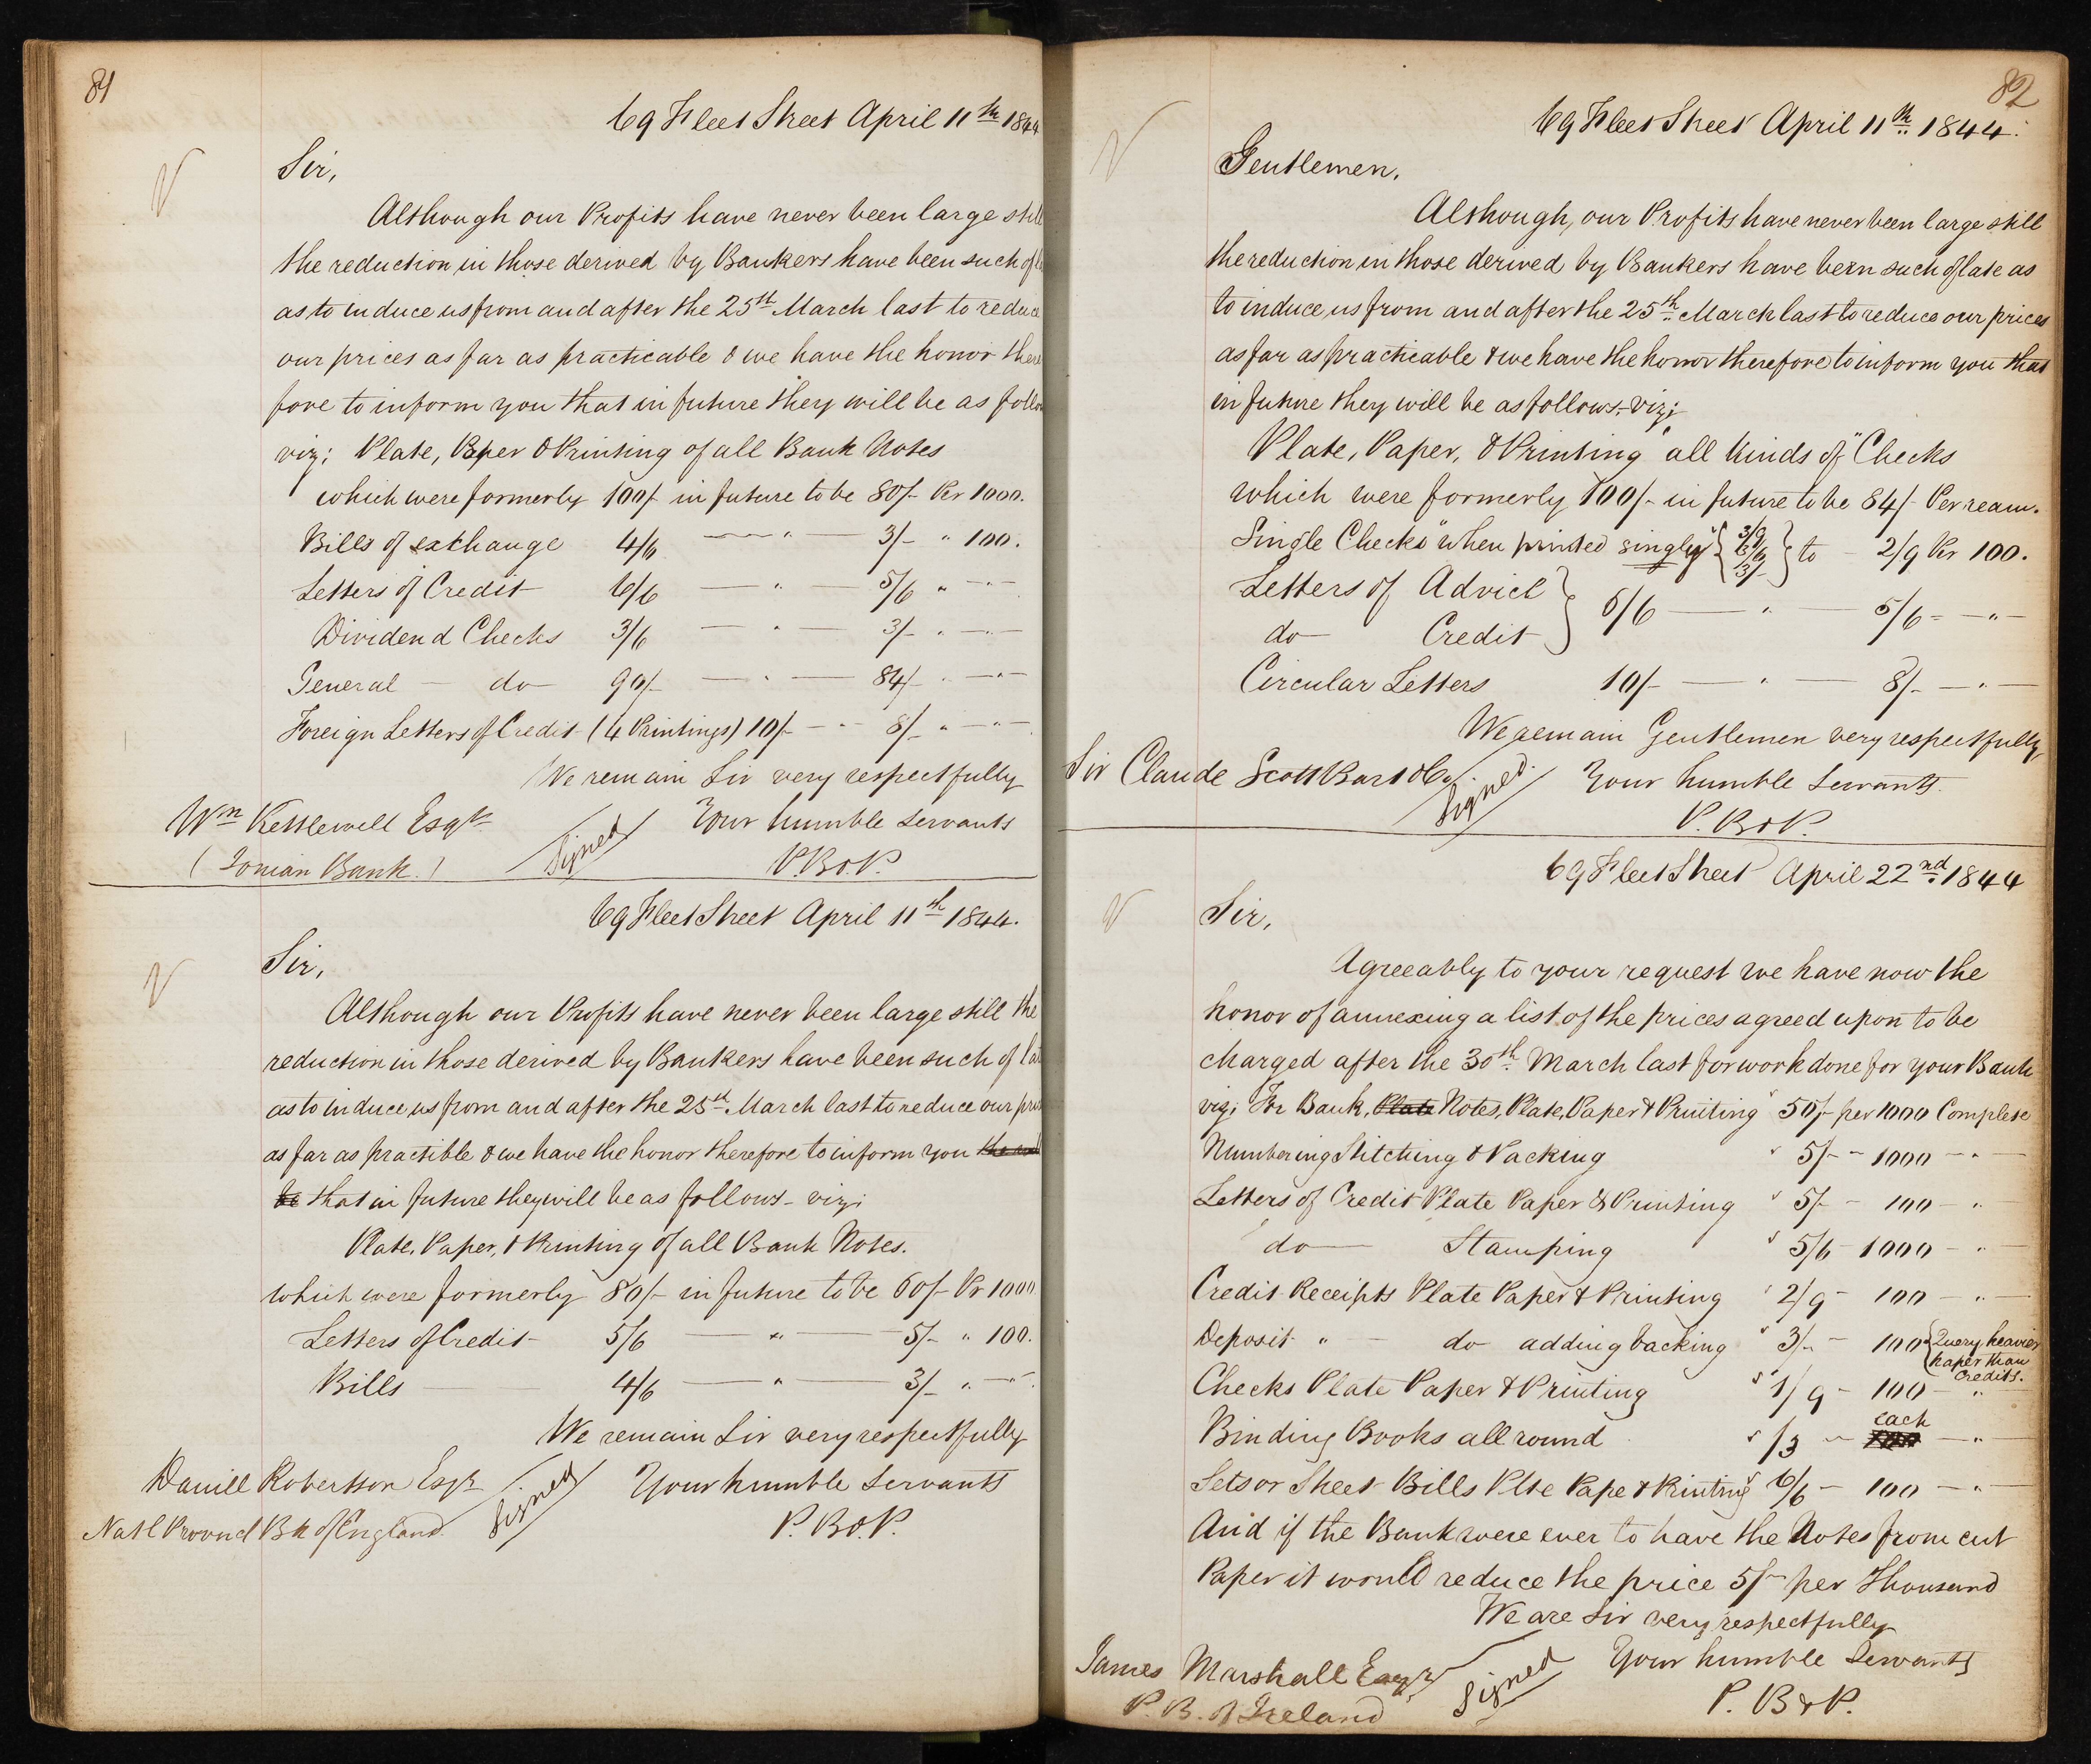 81
69 Fleet Street April 11th 1844
Sir,
Although our Profits have never been large still
the reduction in those derived by Bankers have been such of
as to induce us from and after the 25th March last to reduce
our prices as far as practicable & we have the honor there
fore to inform you that in future they will be as follow
viz; Plate, Paper & Printing of all Bank Notes
which were formerly 100/- in future to be 80/- Per 1000.
Bills of exchange 4/6 — " — 3/- " 100.
Letters of Credit 6/6 — " — 5/6 " — " —
Dividend Checks 3/6 — " — 3/- " — " —
General — do — 90/- — " — 84/- " — " —
Foreign Letters of Credit (4 Printings) 10/- — " — 8/- " — " —
We remain Sir very respectfully
Wm Kettlewell Esqr Signed Your humble Servants
(Ionian Bank.) P. B & P.
69 Fleet Street April 11th 1844.
Sir,
Although our Profits have never been large still the
reduction in those derived by Bankers have been such of lat
as to induce us from and after the 25th March last to reduce our pri
as far as practible & we have the honor therefore to inform you
be that in future they will be as follows - viz;
Plate, Paper, & Printing of all Bank Notes.
which were formerly 80/- in future to be 60/- Pr 1000.
Letters of Credit 5/6 — " — 5/- " 100.
Bills — 4/6 — " — 3/- " — " —
We remain Sir very respectfully
Daniell Robertson Esqr Signed Your humble Servants
Natl Provncl Bk of England. P. B & P.
82
69 Fleet Street April 11th 1844.
Gentlemen,
Although, our Profits have never been large still
the reduction in those derived by Bankers have been such of late as
to induce us from and after the 25th March last to reduce our prices
as far as practicable & we have the honor therefore to inform you that
in future they will be as follows,- viz;
Plate, Paper, & Printing "all kinds of" Checks
which were formerly 100/- in future to be 84/- Per ream.
Single Checks "when printed singly" { 3/9 3/6 3/- } to — 2/9 Per 100.
Letters of Advice } 6/6 — " — 5/6 - — " —
do — Credit
Circular Letters 10/- — " — 8/- — " —
We remain Gentlemen very respectfully,
Sir Claude Scott Bart & Co. Signed. Your humble Servants.
P. B & P.
69 Fleet Street April 22nd 1844
Sir,
Agreeably to your request we have now the
honor of annexing a list of the prices agreed upon to be
charged after the 30th March last for work done for your Bank
viz; For Bank, Plate Notes, Plate, Paper & Printing " 50/- per 1000 Complete
Numbering Stitching & Packing " 5/- - 1000 — " —
Letters of Credit Plate Paper & Printing " 5/- - 100 — "
do — Stamping " 5/6 - 1000 — "
Credit Receipts Plate Paper & Printing " 2/9 - 100 — " —
Deposit " — do adding backing " 3/- - 100 { Query heavier
paper than
Credits.
Checks Plate Paper & Printing " 1/9 - 100 — " —
Binding Books all round " /3 - each — " —
Sets or Sheet Bills Plte Pape & Printing " 6/6 - 100 — " —
And if the Bank were ever to have the Notes from cut
Paper it would reduce the price 5/- per Thousand
We are Sir very respectfully
James Marshall Esqr Signed Your humble Servants
P. B. of Ireland P. B & P.